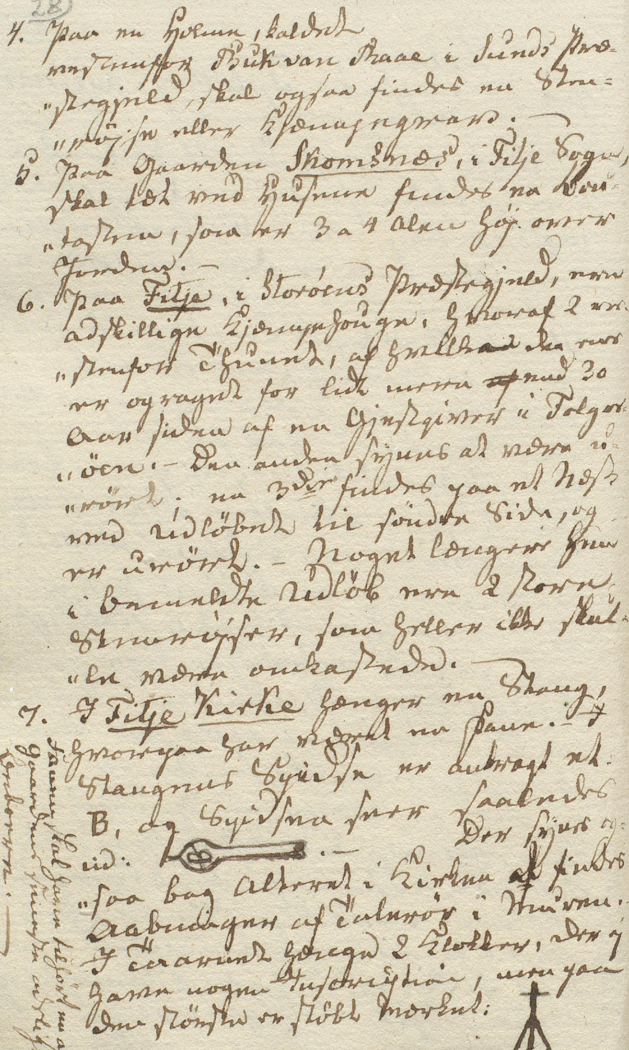 28)
4. Paa en Holme, kaldet
vestenfor Buk van Raae i Sunds Præ-
„stegjeld, skal ogsaa findes en Sten-
„røjse eller Kjæmpegrav. —
5. Paa Gaarden Skomsnæs, i Fitje Sogn,
skal tæt ved Husene findes en Bau-
„tasten, som er 3 a 4 Alen høj over
Jorden. —
6. Paa Fitje, i Storöens Præstegjeld, ere
adskillige Kjæmpehouge, hvoraf 2 ve-
„stenfor Thunet, af hvilke den ene
er opragt for lidt mere end 30
Aar siden af en Gjestgiver i Folger-
„öen. — Den anden synes at være u-
„rört; en 3die findes paa et Næs
ved Udløbet til söndre Side, og
er urört. — Noget længere hen
i bemeldte Udlöb ere 2 store
Stenrøjser, som heller ikke skul-
„le være omkastede. —
7. I Fitje Kirke hænger en Stang,
hvorpaa har været en Fane. — I
Stangens Spidse er anbragt et
B, og Spidsen seer saaledes
ud: B . — Der synes og-
„saa bag Alteret i Kirken at findes
Aabninger af Talerör i Muren.
I Taarnet hænge 2 Klokker, der ej
have nogen Inscription, men paa
den største er støbt Mærket:
Fanen skal have tilhørt en a
Gaardens
Beboere. —